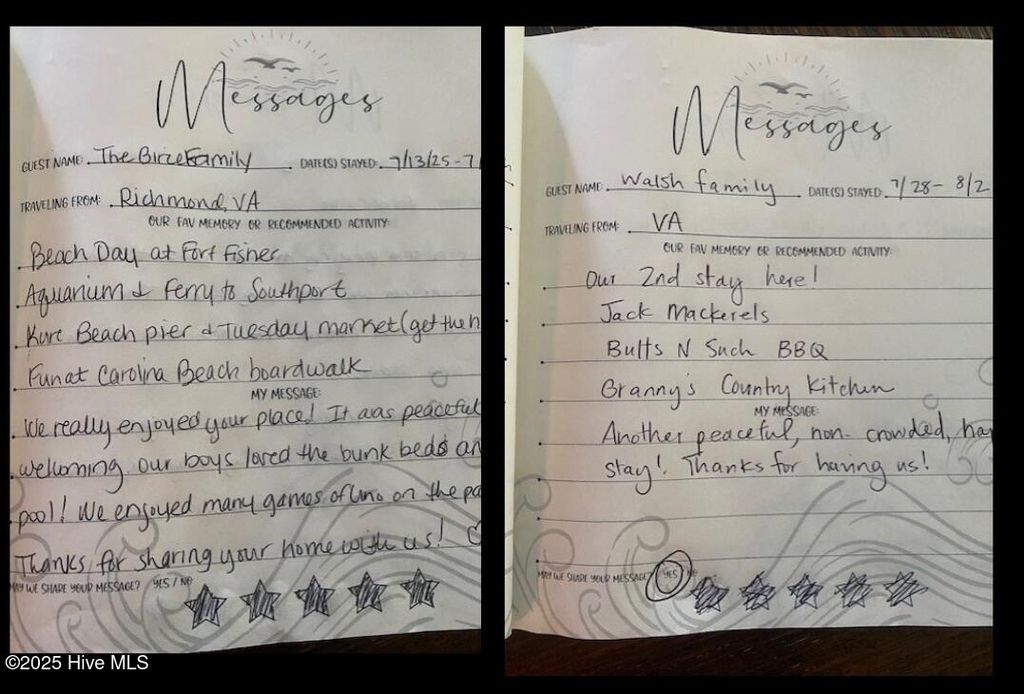 Messages
GUEST NAME: The Birce Family DATE(S) STAYED: 7/13/25 - 7
TRAVELING FROM: Richmond, VA
OUR FAV MEMORY OR RECOMMENDED ACTIVITY:
Beach Day at Fort Fisher
Aquarium & Ferry to Southport
Kure Beach pier & Tuesday market (get the
Fun at Carolina Beach boardwalk
MY MESSAGE:
We really enjoyed your place! It was peaceful
welcoming. Our boys loved the bunk beds an
pool! We enjoyed many games of Uno on the pa
Thanks for sharing your home with us!
MAY WE SHARE YOUR MESSAGE? YES / NO
Messages
GUEST NAME: Walsh family DATE(S) STAYED: 7/28 - 8/2
TRAVELING FROM: VA
OUR FAV MEMORY OR RECOMMENDED ACTIVITY:
Our 2nd stay here!
Jack Mackerels
Butts N Such BBQ
Granny's Country Kitchen
MY MESSAGE:
Another peaceful, non-crowded, ha
stay! Thanks for having us!
MAY WE SHARE YOUR MESSAGE? YES
©2025 Hive MLS